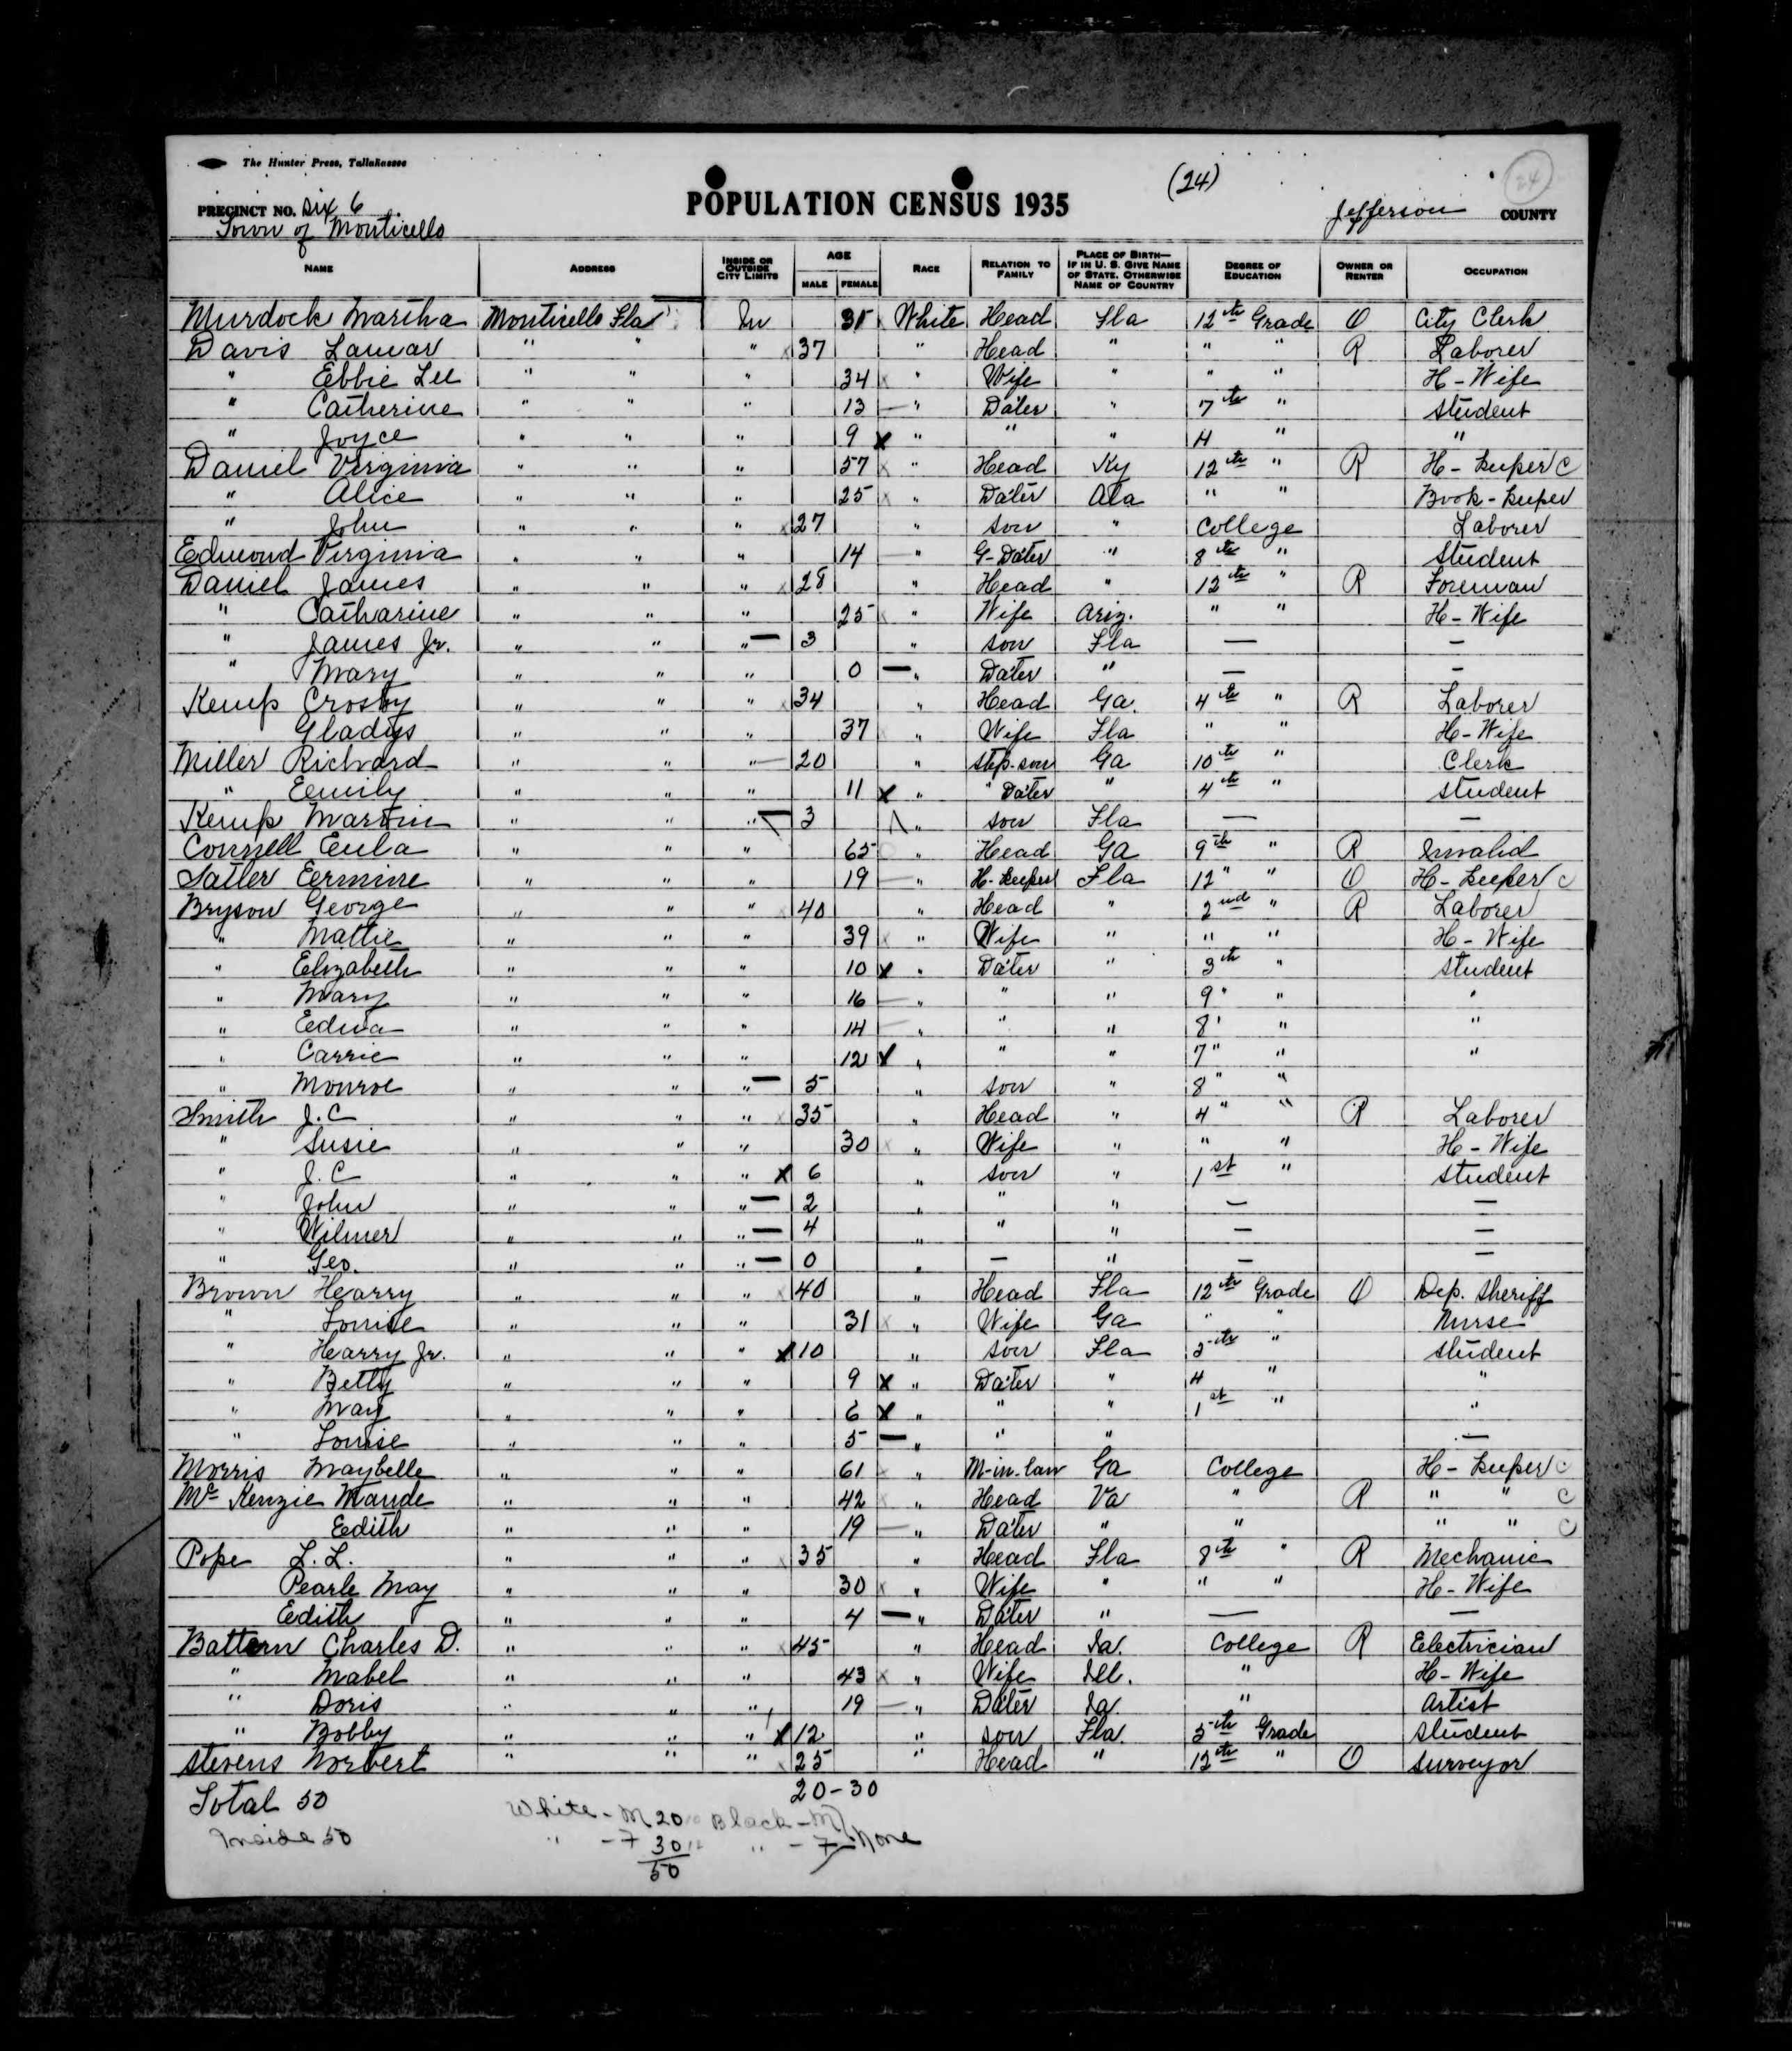 The Hunter Press, Tallahassee
(24)
24
PRECINCT NO. Six 6
Town of Monticello
POPULATION CENSUS 1935
Jefferson COUNTY
NAME ADDRESS INSIDE OR OUTSIDE CITY LIMITS AGE MALE FEMALE RACE RELATION TO FAMILY PLACE OF BIRTH— IF IN U. S. GIVE NAME OF STATE. OTHERWISE NAME OF COUNTRY DEGREE OF EDUCATION OWNER OR RENTER OCCUPATION
Murdock Martha Monticello Fla In White Head Fla 12th Grade O City Clerk
Davis Lamar " " " x 37 " Head " " " R Laborer
" Ebbie Lee " " " 34 x " Wife " " " H-Wife
" Catherine " " " 13 — " Dater " 7th " Student
" Joyce " " " 9 x " " " 4 " "
Daniel Virginia " " " 57 x " Head Ky 12th " R H-Keeper C
" Alice " " " 25 x " Dater Ala " " Book-Keeper
" John " " " x 27 " Son " College Laborer
Edmond Virginia " " " 14 — " G-Dater " 8th " Student
Daniel James " " " x 28 " Head " 12th " R Foreman
" Catharine " " " 25 x " Wife Ariz. " " H-Wife
" James Jr. " " " — 3 " Son Fla — —
" Mary " " " 0 — " Dater " — —
Kemp Crosby " " " x 34 " Head Ga. 4th " R Laborer
Gladys " " " 37 x " Wife Fla " " H-Wife
Miller Richard " " " — 20 " Step-son Ga 10th " Clerk
" Eemily " " " 11 x " " Dater " 4th " Student
Kemp Martin " " " — 3 " Son Fla — —
Connell Eula " " " 65 " Head Ga 9th " R Invalid
Satler Eermine " " " 19 — " H-Keeper Fla 12 " " O H-Keeper C
Bryson George " " " 40 " Head " 2nd " R Laborer
" Mattie " " " 39 x " Wife " " " H-Wife
" Elizabeth " " " 10 x " Dater " 3th " Student
" Mary " " " 16 — " " " 9 " " "
" Edna " " " 14 — " " " 8 " " "
" Carrie " " " 12 x " " " 7 " " "
" Monroe " " " — 5 " Son " 8 " "
Smith J.C " " " x 35 " Head " 4 " " R Laborer
" Susie " " " 30 x " Wife " " " H-Wife
" J.C " " " x 6 " Son " 1st " Student
" John " " " — 2 " " " — —
" Wilmer " " " — 4 " " " — —
" Geo. " " " — 0 " — " — —
Brown Hearry " " " x 40 " Head Fla 12th Grade O Dep. Sheriff
" Louise " " " 31 x " Wife Ga " " Nurse
" Hearry Jr. " " " x 10 " Son Fla 5th " Student
" Betty " " " 9 x " Dater " 4 " "
" May " " " 6 x " " " 1st " "
" Louise " " " 5 — " " " —
Morris Maybelle " " " 61 x " M-in-law Ga College H-Keeper C
Mc Kenzie Maude " " " 42 x " Head Va " R " " C
Edith " " " 19 — " Dater " " " " C
Pope L. L. " " " x 35 " Head Fla 8th " R Mechanic
Pearle May " " " 30 x " Wife " " " H-Wife
Edith " " " 4 — " Dater " — —
Battern Charles D. " " " x 45 " Head Ia. College R Electrician
" Mabel " " " 43 x " Wife Ill. " H-Wife
" Doris " " " 19 — " Dater Ia. " Artist
" Bobby " " " x 12 " Son Fla. 5th Grade Student
Stevens Norbert " " " x 25 " Head " 12th " O Surveyor
Total 50 20-30
Inside 50
White - M 20 Black - M
" - F 30 " - F None
50